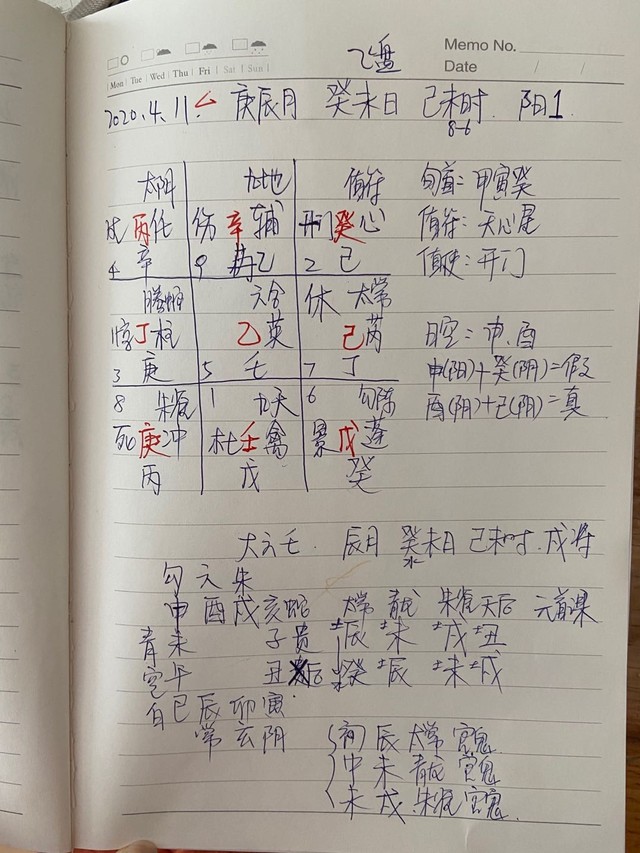 飞盘
Memo No.
Date / /
Mon Tue Wed Thu Fri Sat Sun
2020.4.11. 庚辰月 癸未日 己未时 阳1
8-6
太阴 九地 值符 旬首:甲寅癸
丙任 伤辛辅 开门癸心 值符:天心星
4 辛 9 乙 2 己 值使:开门
螣蛇 六合 休 太常
惊丁柱 乙英 己芮 日空:申、酉
3 庚 5 壬 7 丁 申(阳)+癸(阴)=假
8 朱雀 1 九天 6 勾陈 酉(阴)+己(阴)=真
死庚冲 杜壬禽 景戊蓬
丙 戊 癸
大六壬 辰月 癸未日 己未时 戌将
水
勾 六 朱
申 酉 戌 亥蛇 太常 青龙 朱雀 天后 元首课
青未 子贵 土辰 土未 土戌 土丑
空午 丑后 水癸 土辰 土未 土戌
白巳 辰 卯 寅
常 玄 阴
初 辰 太常 官鬼
中 未 青龙 官鬼
末 戌 朱雀 官鬼